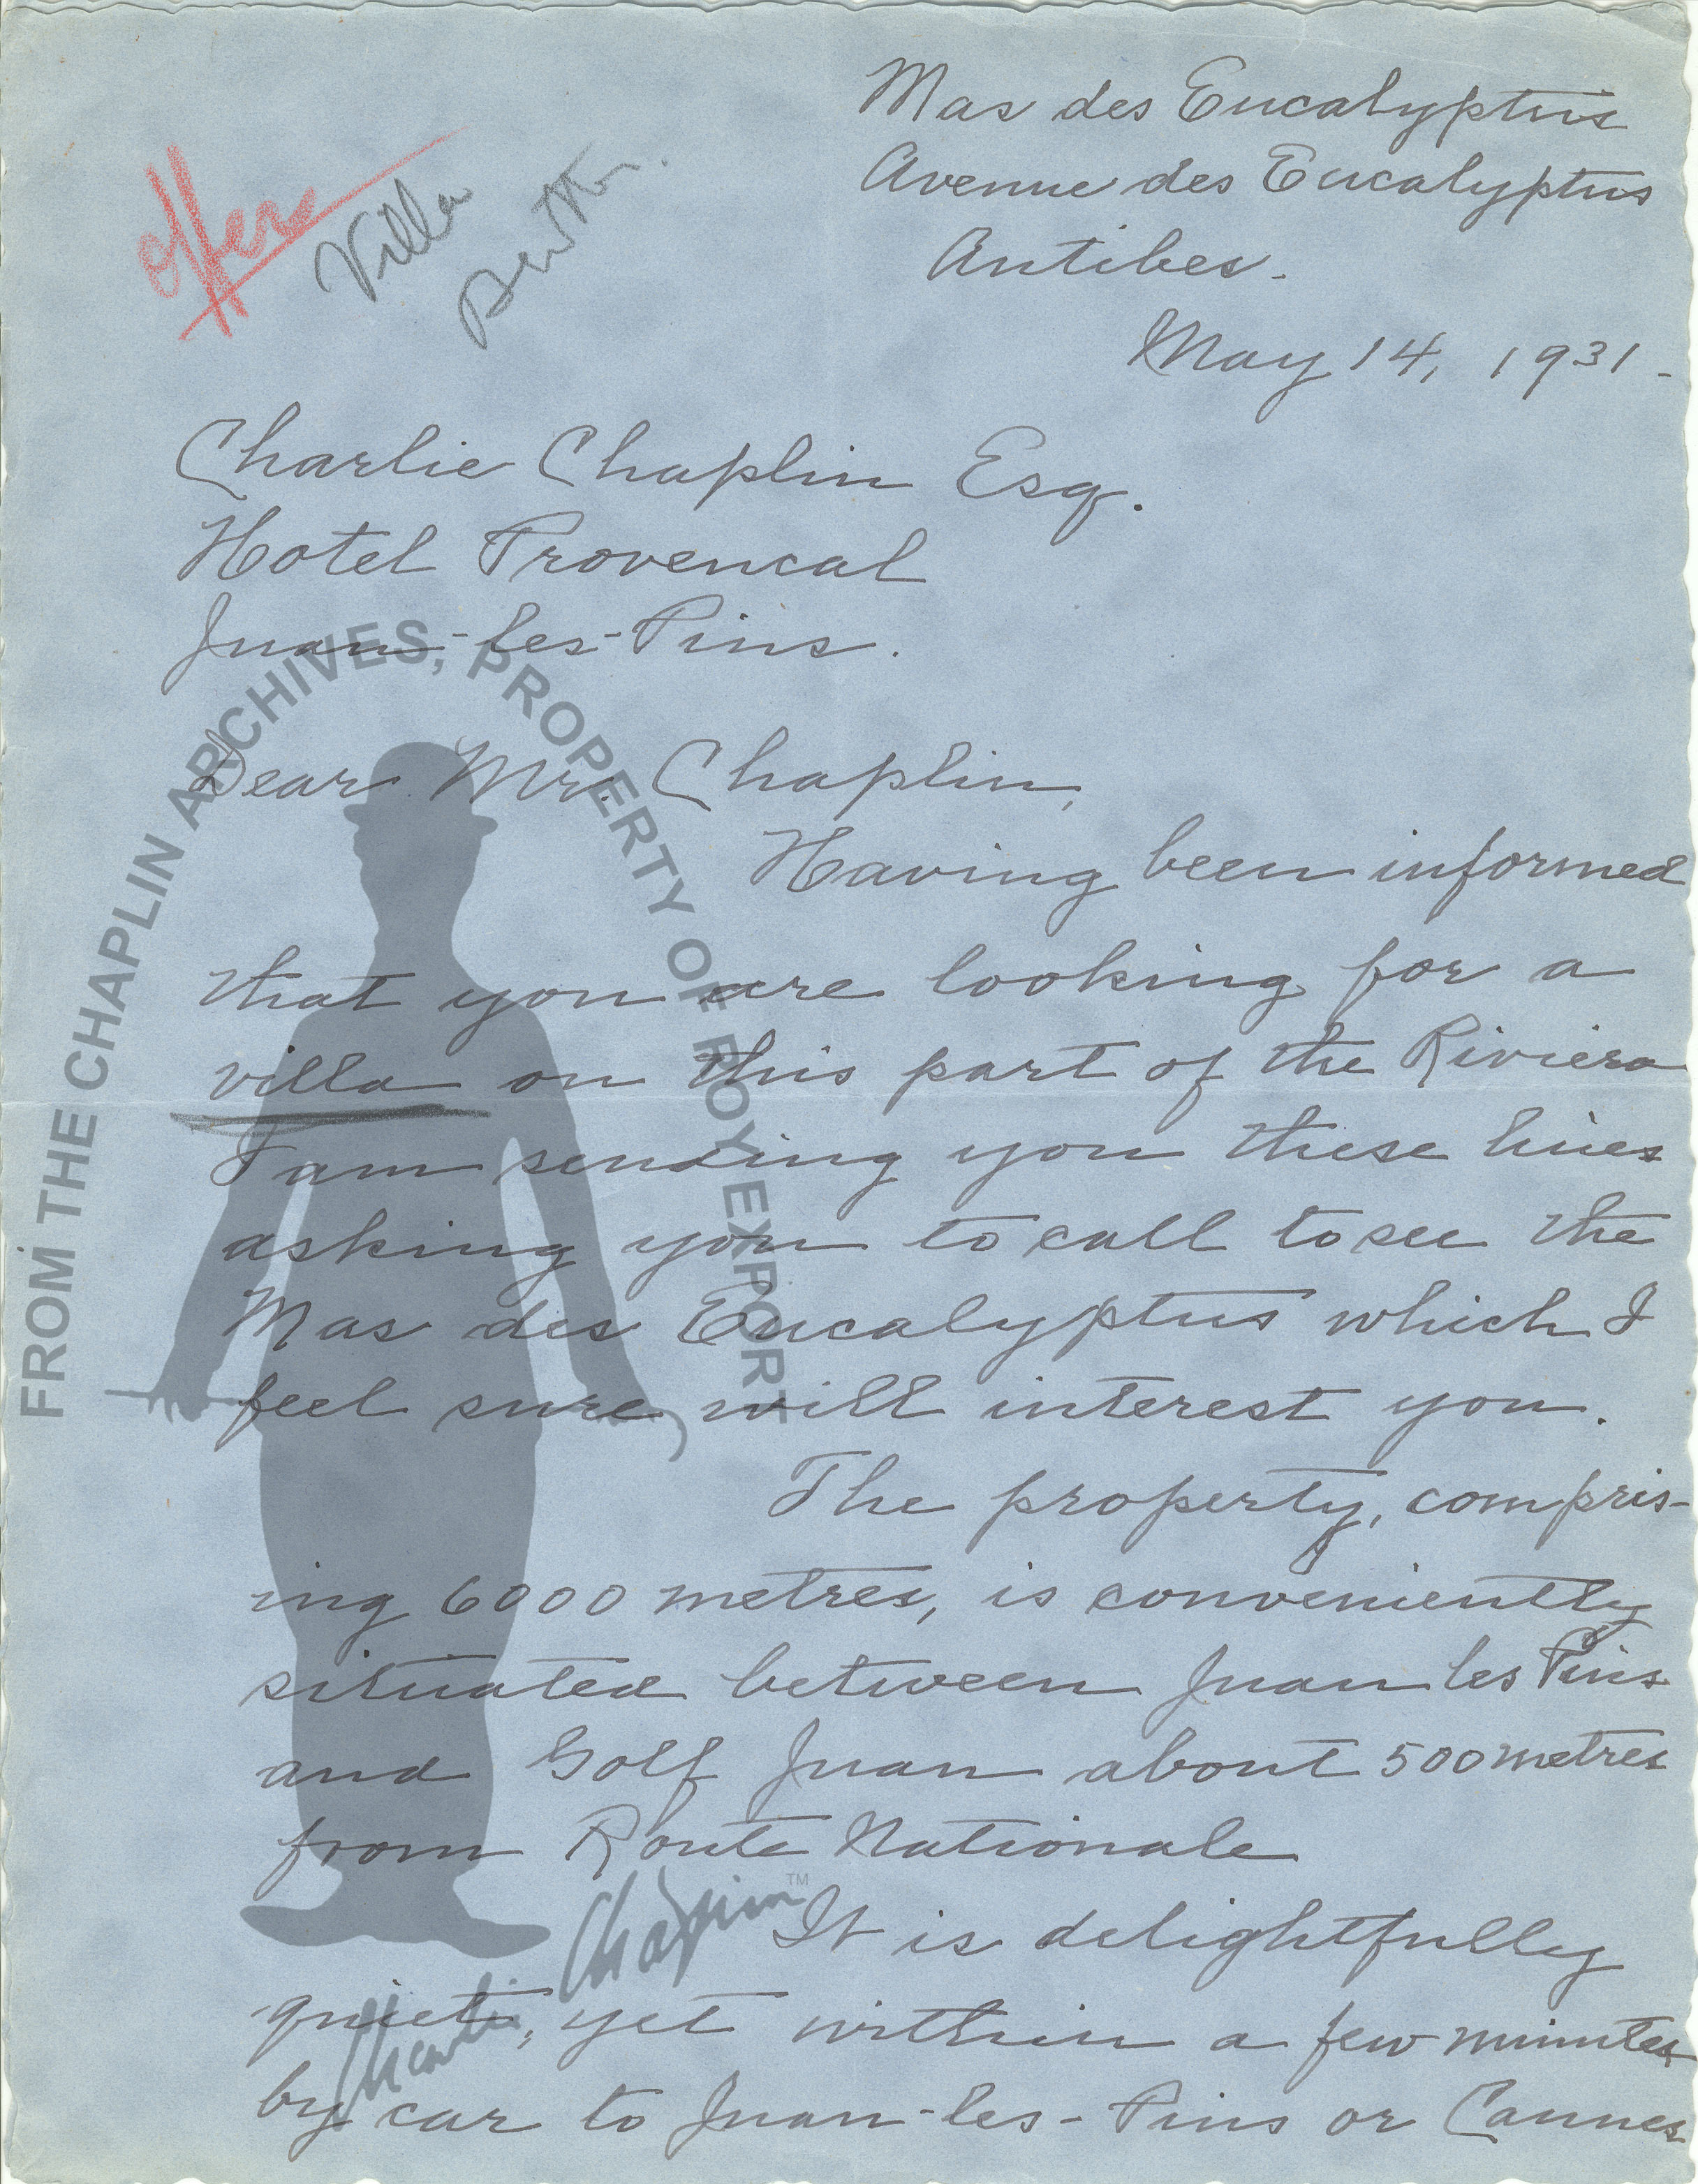 Mas des Eucalyptus
Avenue des Eucalyptus
Antibes.
May 14, 1931.
offer
Villa
Charlie Chaplin Esq.
Hotel Provencal
Juan-les-Pins.
Dear Mr. Chaplin,
Having been informed
that you are looking for a
villa on this part of the Riviera
I am sending you these lines
asking you to call to see the
Mas des Eucalyptus which I
feel sure will interest you.
The property, compris-
ing 6000 metres, is conveniently
situated between Juan les Pins
and Golf Juan about 500 metres
from Route Nationale
It is delightfully
quiet, yet within a few minutes
by car to Juan-les-Pins or Cannes
FROM THE CHAPLIN ARCHIVES, PROPERTY OF ROY EXPORT
Charlie Chaplin™